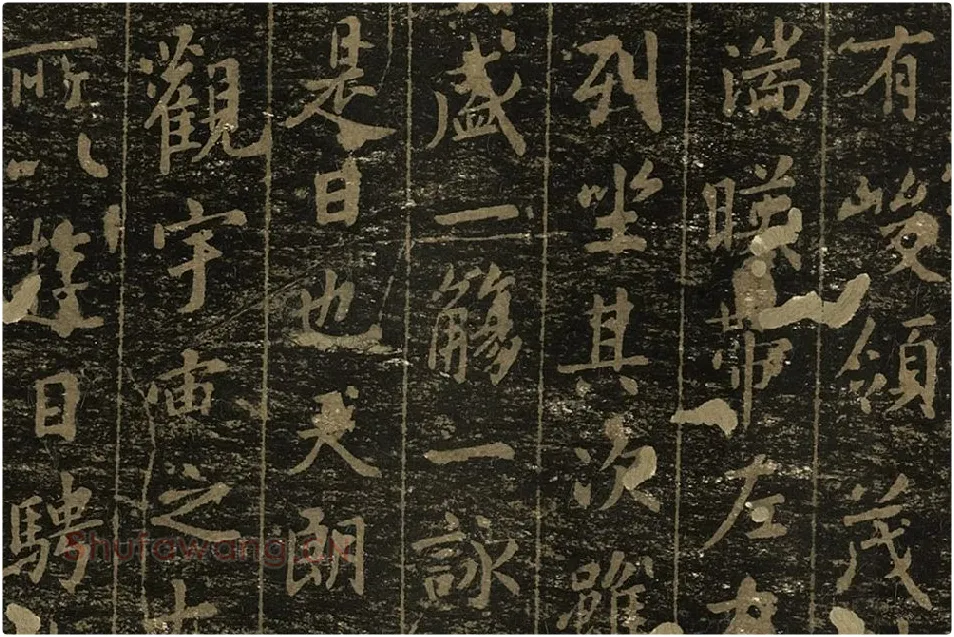 有峻領茂
湍暎帶左右
列坐其次雖
盛一觴一詠
是日也天朗
觀宇宙之大
所以遊目騁
Shufawang.cn